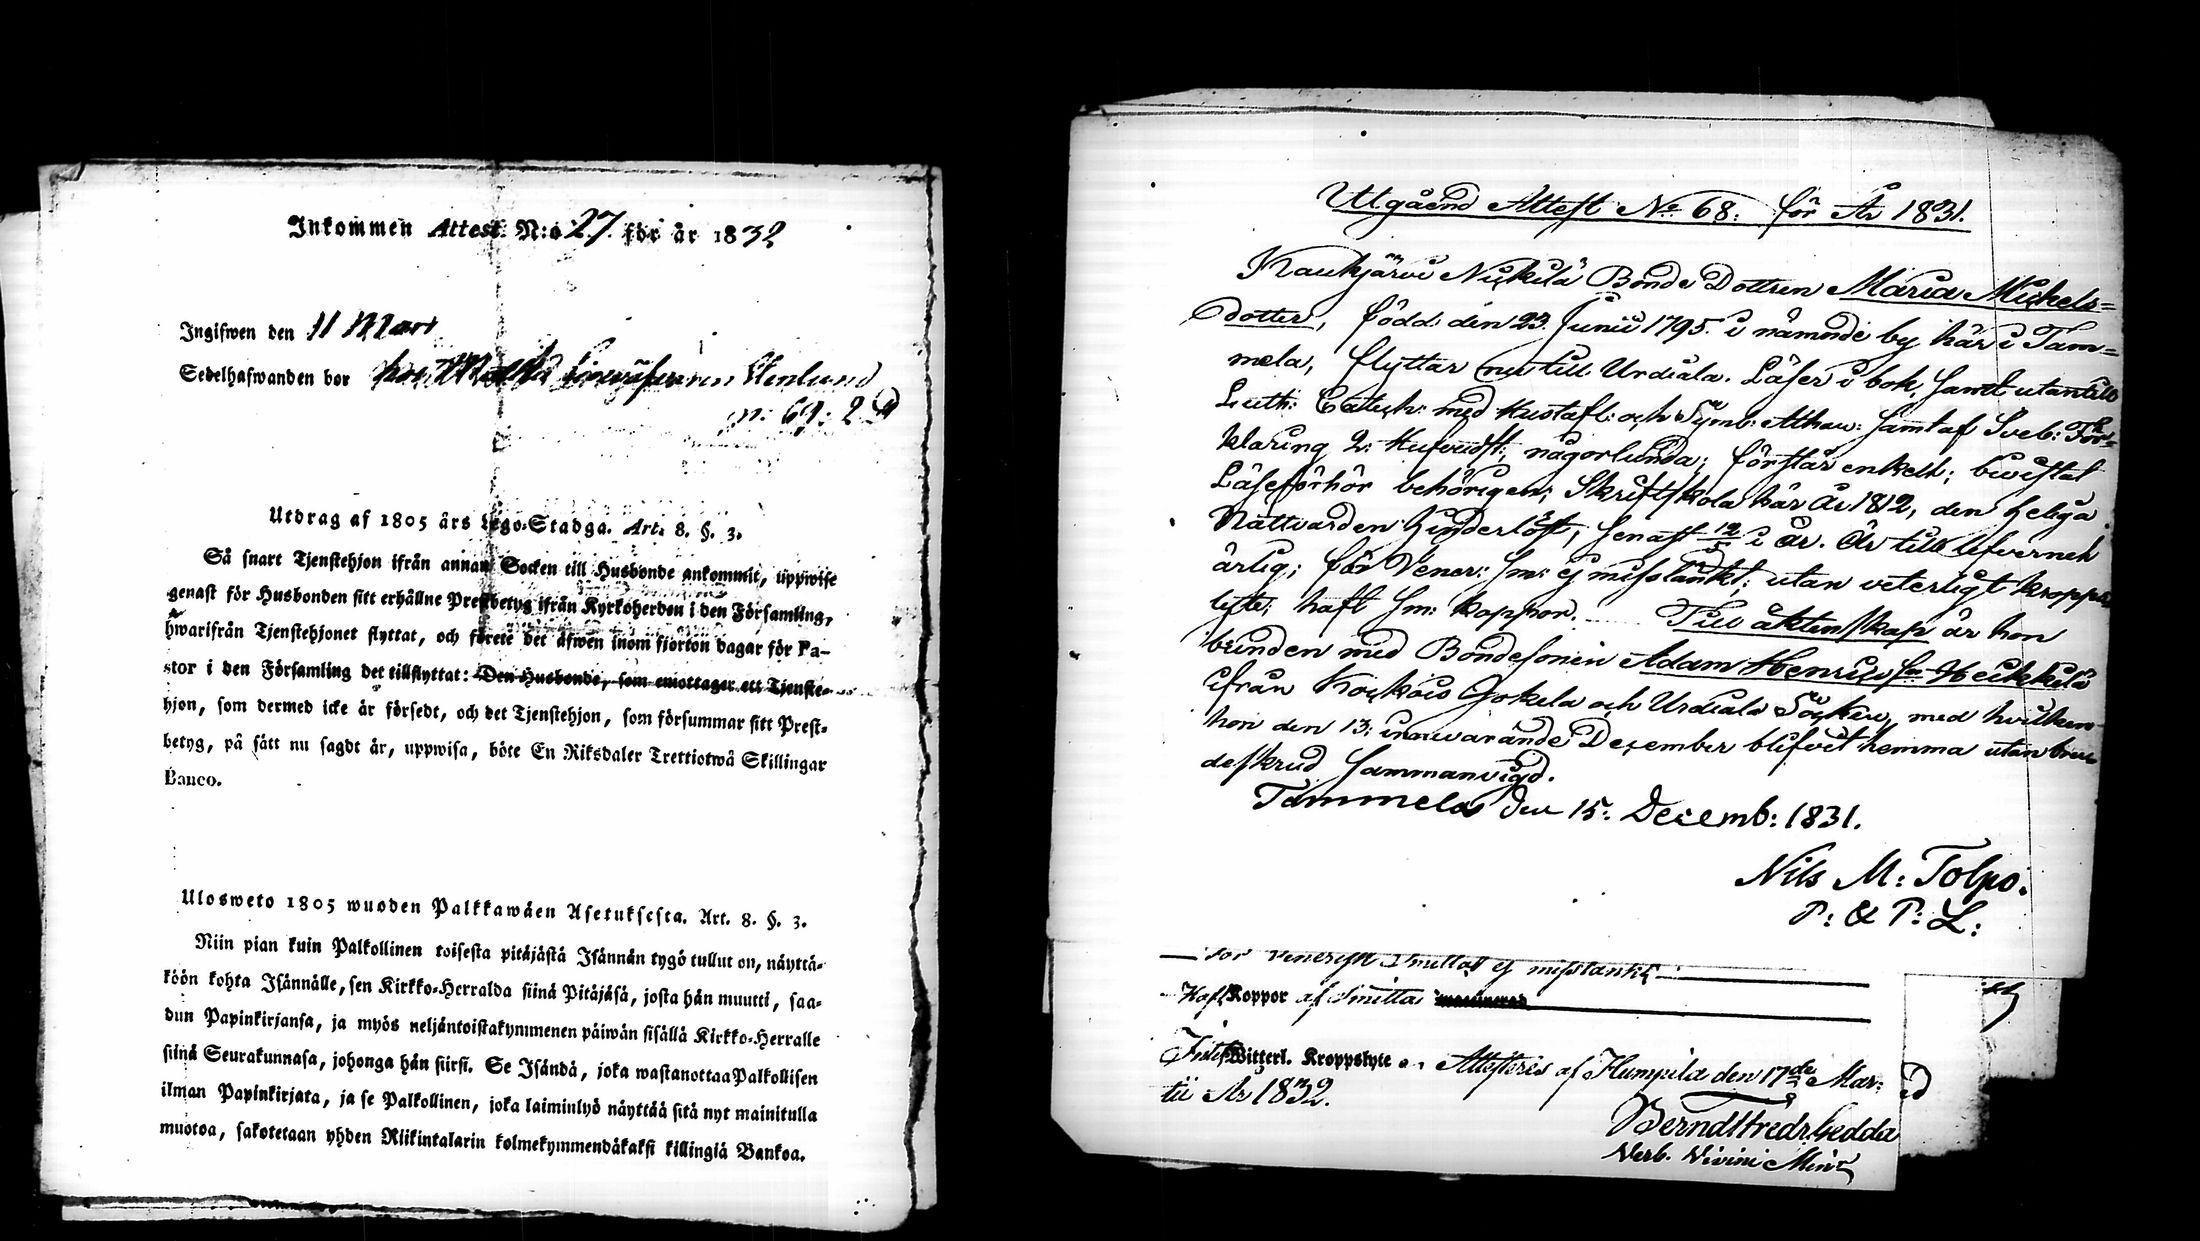 Inkommen Attest. N:o 27. för år 1832
Ingifwen den 11 Mars
Sedelhafwanden bor hos
p: 69: 2
Utdrag af 1805 års Lego-Stadga. Art. 8. §. 3.
Så snart Tjenstehjon ifrån annan Socken till Husbonde ankommit, uppwise
genast för Husbonden sitt erhållne Prestbetyg ifrån Kyrkoherden i den Församling,
hwarifrån Tjenstehjonet flyttat, och förete det äfwen inom fjorton dagar för Pa-
stor i den Församling det tillflyttat: Den Husbonde, som emottager ett Tjenste-
hjon, som dermed icke är försedt, och det Tjenstehjon, som försummar sitt Prest-
betyg, på sätt nu sagdt är, uppwisa, böte En Riksdaler Trettiotwå Skillingar
Banco.
Ulosweto 1805 wuoden Palkkawäen Asetuksesta. Art. 8. §. 3.
Niin pian kuin Palkollinen toisesta pitäjästä Isännän tygö tullut on, näyttä-
köön kohta Isännälle, sen Kirkko-Herralda siinä Pitäjäsä, josta hän muutti, saa-
dun Papinkirjansa, ja myös neljäntoistakymmenen päiwän sisällä Kirkko-Herralle
siinä Seurakunnasa, johonga hän siirsi. Se Isändä, joka wastanottaa Palkollisen
ilman Papinkirjata, ja se Palkollinen, joka laiminlyö näyttää sitä nyt mainitulla
muotoa, sakotetaan yhden Riikintalarin kolmekymmendäkaksi killingiä Bankoa.
Utgåend Attest No. 68: för År 1831.
Kaukjärvi Nickilä Bonde Dottren Maria Mickels=
dotter, född den 23. Junii 1795. i nämnde by här i Tam=
mela, flyttar nu till Urdiala. Läser i bok, samt utantill
Luth: Catech: med Hustafl: och Symb: Athan: samt af Sveb: För=
klaring 2: Hufvudst:, någorlunda; förstår enkelt; bevistat
Läseförhör behörigen; Skriftskola här år 1812, den heliga
Nattvarden hinderlöst, senast 12/5 i år. Är till lefverneh
ärlig; för Vener: Sm: ej misstänkt; utan veterligt kropps
lyte; haft Sm: koppor. Till äktenskap är hon
bunden med Bondesonen Adam Henrics son Heikkilä
ifrån Koickois Jokela och Urdiala Socken, med hvilken
hon den 13: innevarande December blifvit hemma utan bru
deskrud sammanvigd.
Tammela den 15: Decemb: 1831.
Nils M: Tolpo.
P: & P: L:
för venerisk Smitta ej misstänkt
Haft Koppor af Smitta
Witterl. Kroppslyte Attesteres af Humpila den 17de Mar:
tii År 1832.
Verb. Divini Minr